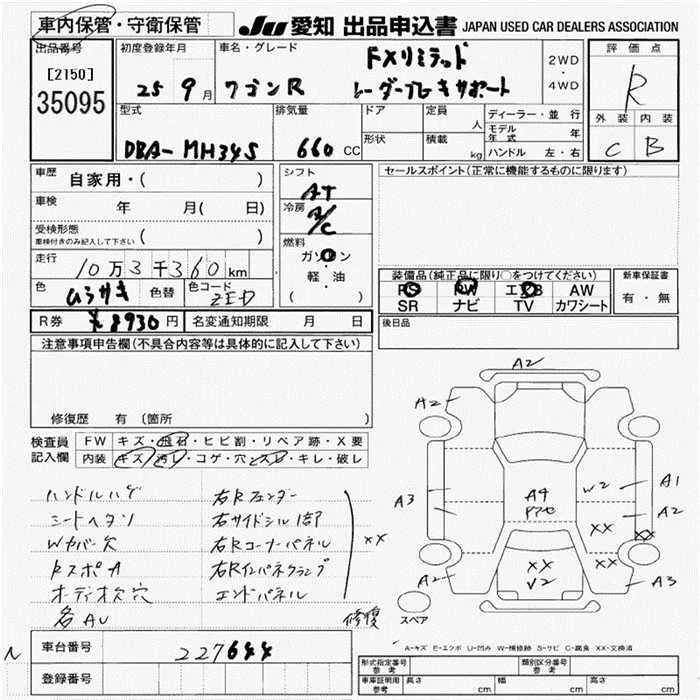 車内保管・守衛保管
JU 愛知 出品申込書 JAPAN USED CAR DEALERS ASSOCIATION
出品番号
[2150]
35095
初度登録年月
25 9月
車名・グレード
ワゴンR
FXリミテッド
レーダーブレーキサポート
2WD
・
4WD
評価点
R
外装 内装
C B
型式
DBA-MH34S
排気量
660 CC
ドア
形状
定員 人
積載 kg
ディーラー・並行
モデル年式 年
ハンドル 左・右
車歴
自家用・( )
車検 年 月( 日)
受検形態
車検付きのみ記入して下さい ( )
走行
10万3千360km
色
ムラサキ
色替
色コード
ZED
R券 ¥8930円
名変通知期限 月 日
シフト
AT
冷房
A/C
燃料
ガソリン
軽・油
( )
セールスポイント(正常に機能するものに限ります)
装備品(純正品に限り○をつけてください)
PS PW エアB AW
SR ナビ TV カワシート
新車保証書
有・無
後日品
注意事項申告欄(不具合内容等は具体的に記入して下さい)
修復歴 有 〔箇所
検査員
記入欄
FW キズ・飛石・ヒビ割・リペア跡・X要
内装 キズ・汚レ・コゲ・穴・スレ・キレ・破レ
ハンドルハゲ 右Rフェンダー
シートヘタリ 右サイドシル1部
Wカバー欠 右Rコーナーパネル
RスポA 右Rインパネクランプ
オーディオ欠穴 エンドパネル
各AU
xx
修復
A2
A2
A3
A4
W2
A1
A2
XX
XX
XX
XX
V2
A2
A3
スペア
A-キズ E-エクボ U-凹み W-補修跡 S-サビ C-腐食 XX-交換済
N
車台番号
227644
登録番号
形式指定番号 参考
類別区分番号 参考
車庫証明用 参考
長さ cm 幅 cm 高さ cm